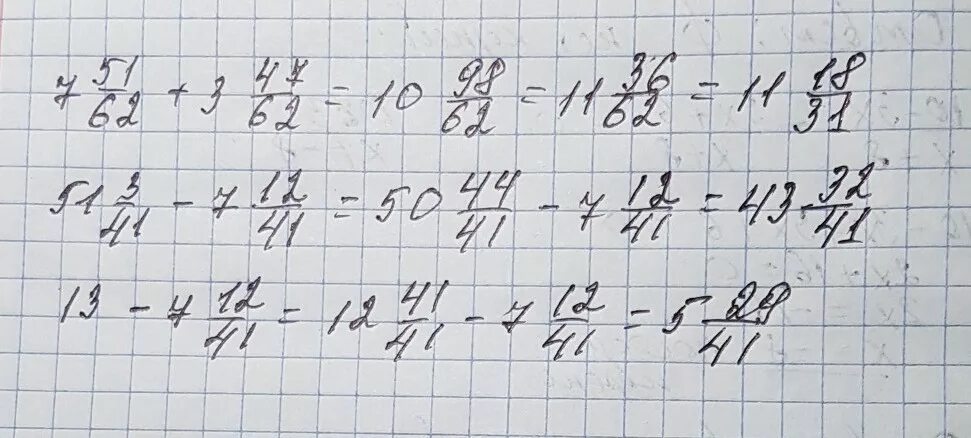 7 51/62 + 3 47/62 = 10 98/62 = 11 36/62 = 11 18/31
51 3/41 - 7 12/41 = 50 44/41 - 7 12/41 = 43 32/41
13 - 7 12/41 = 12 41/41 - 7 12/41 = 5 29/41